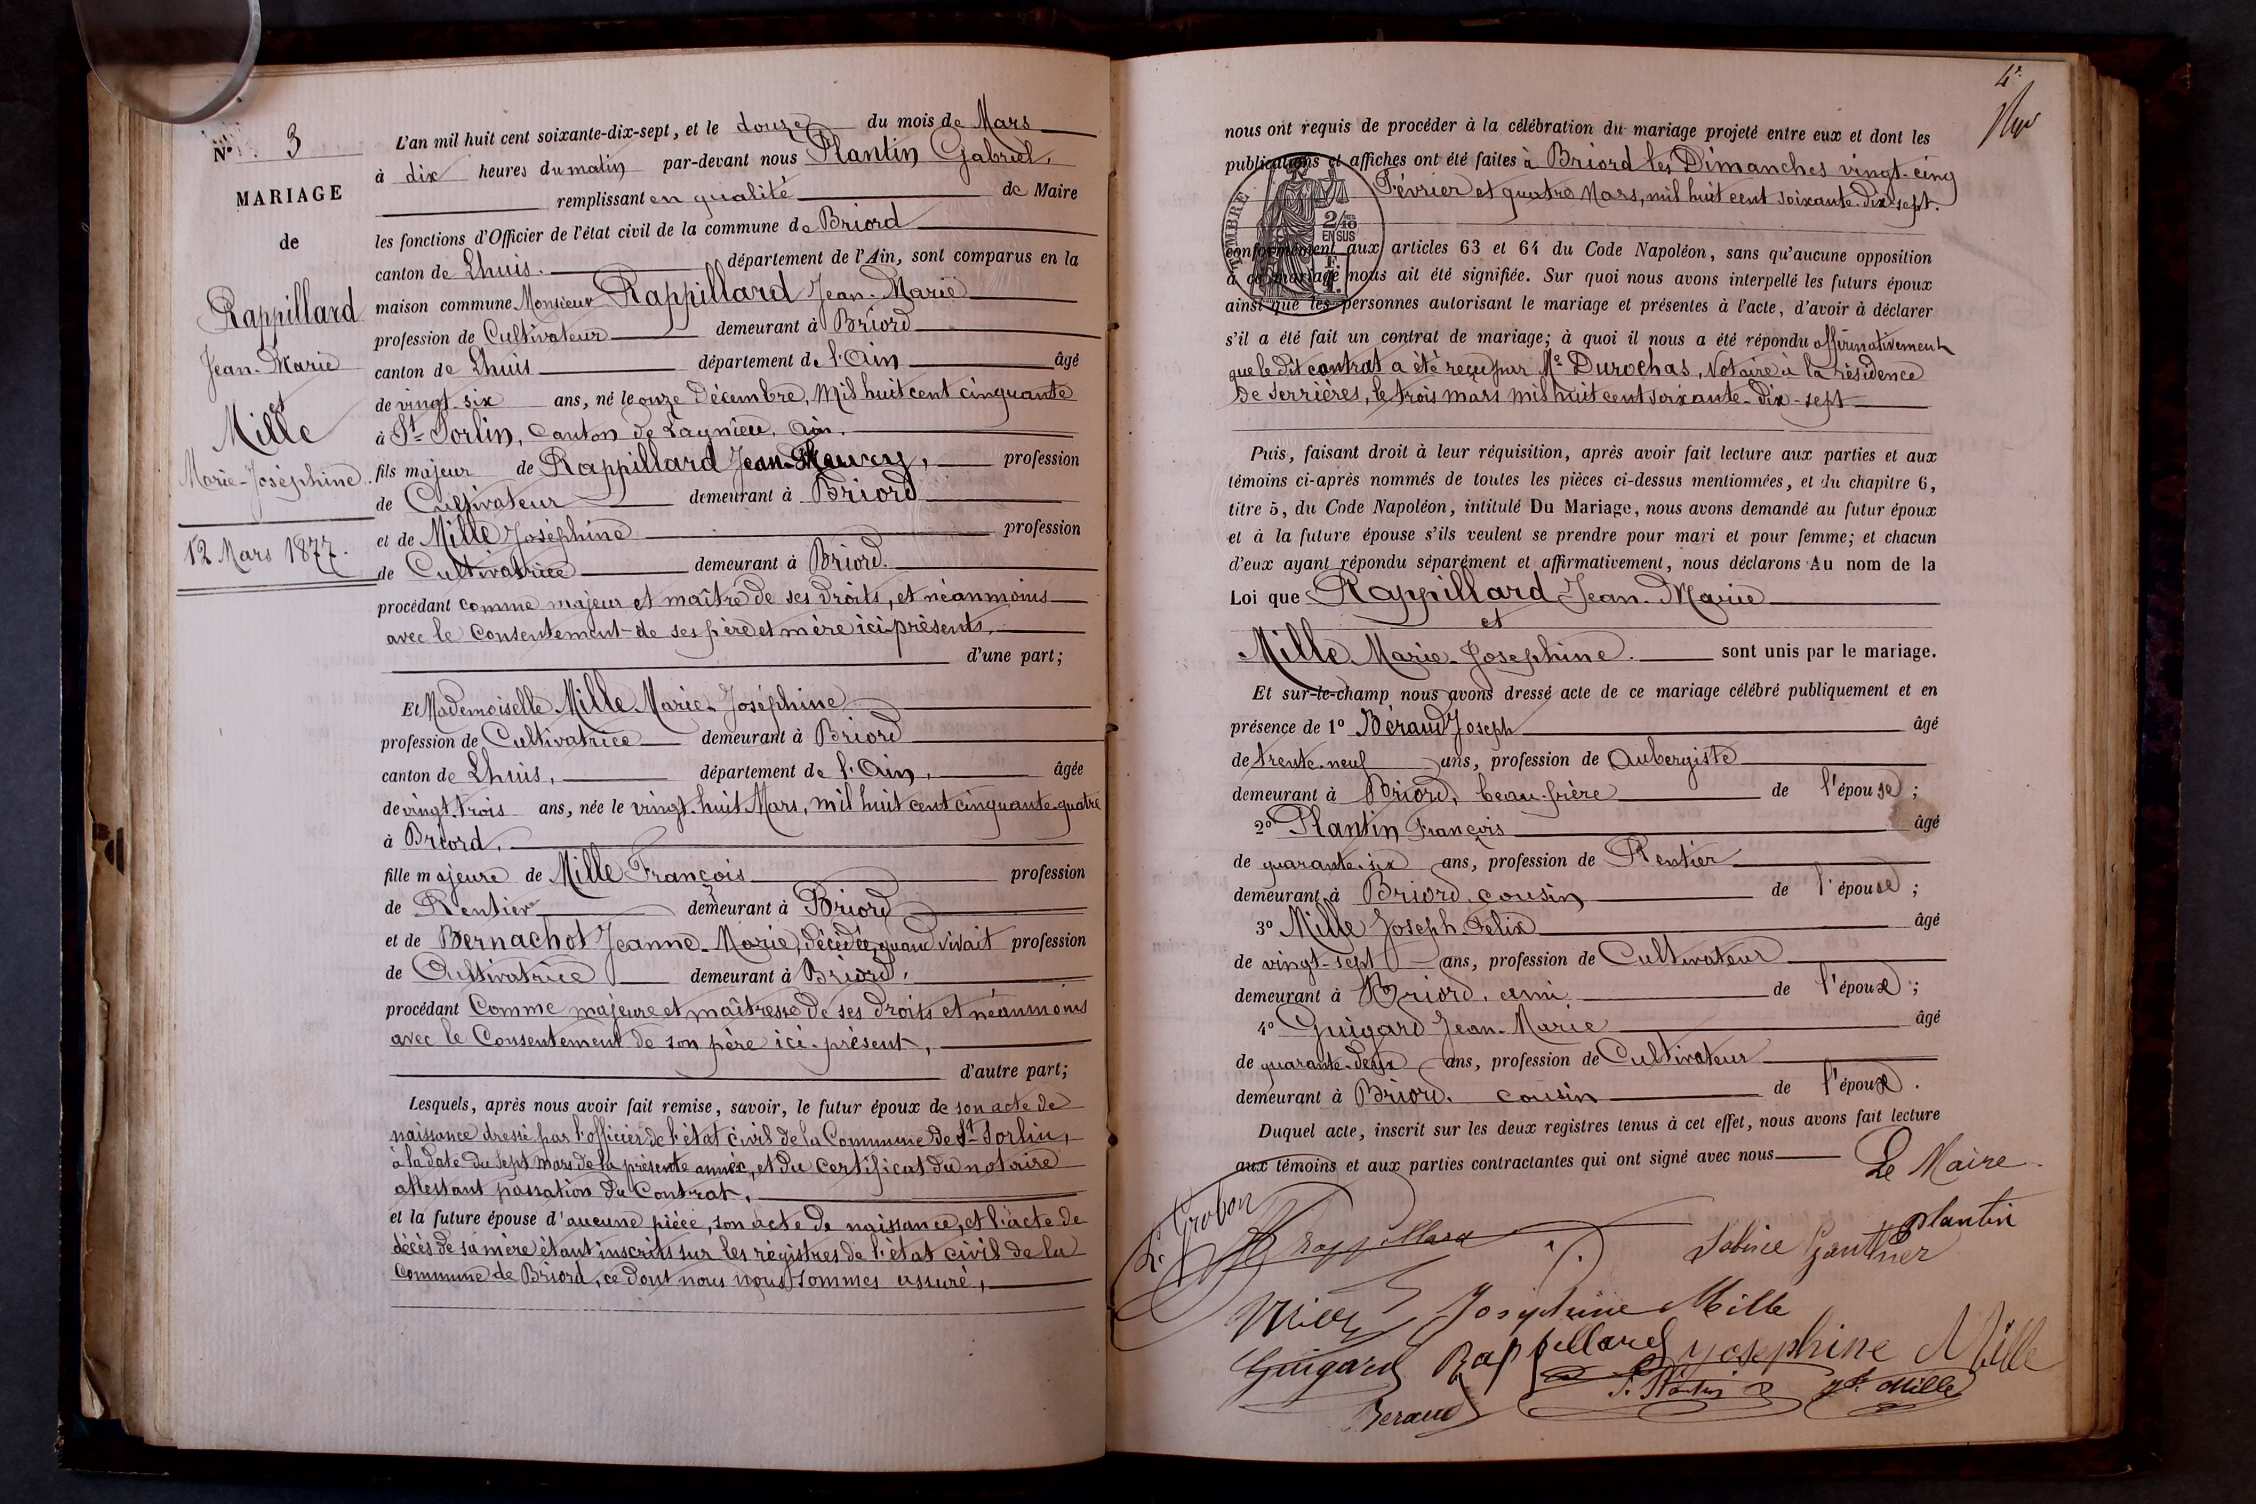 N° 3
MARIAGE
de
Rappillard
Jean-Marie
et
Mille
Marie-Joséphine.
12 Mars 1877.
L'an mil huit cent soixante-dix-sept, et le douze du mois de Mars
à dix heures du matin par-devant nous Plantin Gabriel,
remplissant en qualité de Maire
les fonctions d'Officier de l'état civil de la commune de Briord
canton de Lhuis. département de l'Ain, sont comparus en la
maison commune Monsieur Rappillard Jean-Marie
profession de Cultivateur demeurant à Briord
canton de Lhuis département de l'Ain âgé
de vingt-six ans, né le onze Décembre, Mil huit cent cinquante
à St-Sorlin, Canton de Lagnieu, Ain.
fils majeur de Rappillard Jean- profession
de Cultivateur demeurant à Briord
et de Mille Joséphine profession
de Cultivatrice demeurant à Briord.
procédant comme majeur et maître de ses droits, et néanmoins
avec le Consentement de ses père et mère ici-présents,
d'une part;
Et Mademoiselle Mille Marie-Joséphine
profession de Cultivatrice demeurant à Briord
canton de Lhuis, département de l'Ain, âgée
de vingt-trois ans, née le vingt-huit Mars, mil huit cent cinquante-quatre
à Briord,
fille majeure de Mille François profession
de Rentier demeurant à Briord
et de Bernachot Jeanne-Marie, décédée, quand vivait profession
de Cultivatrice demeurant à Briord,
procédant Comme majeure et maîtresse de ses droits et néanmoins
avec le Consentement de son père ici-présent,
d'autre part;
Lesquels, après nous avoir fait remise, savoir, le futur époux de son acte de
naissance dressé par l'officier de l'état civil de la Commune de St-Sorlin,
à la date du sept mars de la présente année, et du certificat du notaire
attestant passation du Contrat,
et la future épouse d'aucune pièce, son acte de naissance, et l'acte de
décès de sa mère étant inscrits sur les régistres de l'état civil de la
Commune de Briord, ce dont nous nous sommes assuré,
4e
nous ont requis de procéder à la célébration du mariage projeté entre eux et dont les
publications et affiches ont été faites à Briord les Dimanches vingt-cinq
Février et quatre Mars, mil huit cent soixante-dix-sept.
TIMBRE
2/10
EN SUS
F.
1.
conformément aux articles 63 et 64 du Code Napoléon, sans qu'aucune opposition
à ce mariage nous ait été signifiée. Sur quoi nous avons interpellé les futurs époux
ainsi que les personnes autorisant le mariage et présentes à l'acte, d'avoir à déclarer
s'il a été fait un contrat de mariage; à quoi il nous a été répondu affirmativement
que le dit contrat a été reçu par Me Durochas, Notaire à la résidence
de Serrières, le trois mars mil huit cent soixante-dix-sept
Puis, faisant droit à leur réquisition, après avoir fait lecture aux parties et aux
témoins ci-après nommés de toutes les pièces ci-dessus mentionnées, et du chapitre 6,
titre 5, du Code Napoléon, intitulé Du Mariage, nous avons demandé au futur époux
et à la future épouse s'ils veulent se prendre pour mari et pour femme; et chacun
d'eux ayant répondu séparément et affirmativement, nous déclarons Au nom de la
Loi que Rappillard Jean-Marie
et
Mille Marie-Josephine. sont unis par le mariage.
Et sur-le-champ nous avons dressé acte de ce mariage célébré publiquement et en
présence de 1° Béraud Joseph âgé
de trente-neuf ans, profession de Aubergiste
demeurant à Briord, beau-frère de l'épouse;
2° Plantin François âgé
de quarante-six ans, profession de Rentier
demeurant à Briord, cousin de l'épouse;
3° Mille Joseph-Felix âgé
de vingt-sept ans, profession de Cultivateur
demeurant à Briord, ami de l'époux;
4° Guigard Jean-Marie âgé
de quarante-deux ans, profession de Cultivateur
demeurant à Briord. cousin de l'époux.
Duquel acte, inscrit sur les deux registres tenus à cet effet, nous avons fait lecture
aux témoins et aux parties contractantes qui ont signé avec nous
Le Maire.
Plantin
Grobon
Rappillard
Sabine Gauthier
Mille Josephine Mille
Guigard Rappillard Josephine Mille
Beraud F. Plantin Mille